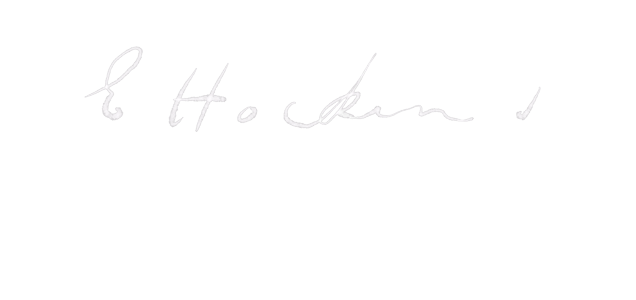 E Hocken s